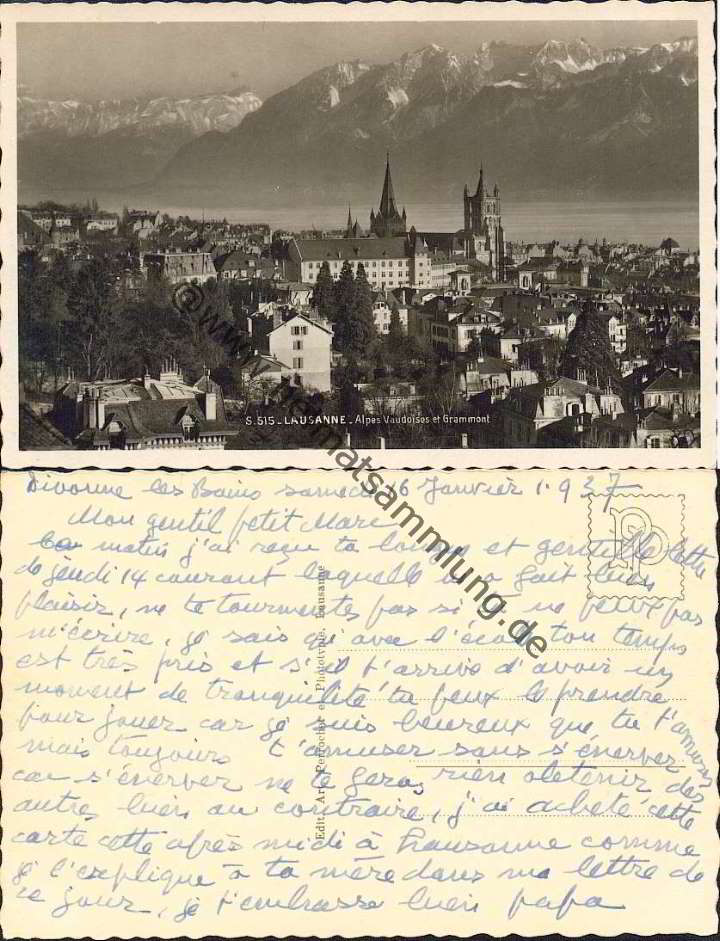 S. 515 - LAUSANNE. Alpes Vaudoises et Grammont
www.heimatsammlung.de
Divonne les Bains samedi 16 Janvier 1.937
Mon gentil petit Marc
Ce matin j'ai reçu ta longue et gentille lettre
de jeudi 14 courant laquelle m'a fait bien
plaisir, ne te tourmente pas si tu ne peux pas
m'écrire, je sais qu'avec l'école ton temps
est très pris et s'il t'arrive d'avoir un
moment de tranquilité tu peux le prendre
pour jouer car je suis heureux que tu t'amuses
mais toujours t'amuser sans s'énerver
car s'énerver ne te fera rien obtenir des
autres bien au contraire, j'ai acheté cette
carte cette après midi à Lausanne comme
je l'explique à ta mère dans ma lettre de
ce jour, je t'embrasse bien papa
Edit. Art. Perrochet Phototypie, Lausanne